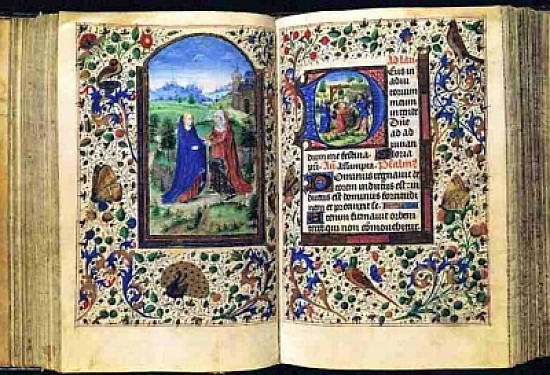 Ad lau
Eus in
adiu
torium
meum
intende
Dñe
ad ad
iuuan
dum me festina
Gloria
pri. Añ. Assumpta. Psalmꝰ
Dominus regnauit de
corem indutus est: in
dutus est dominus fortitudi
nem et precinxit se.
Etenim firmauit orbem
terre: qui non commouebitur.